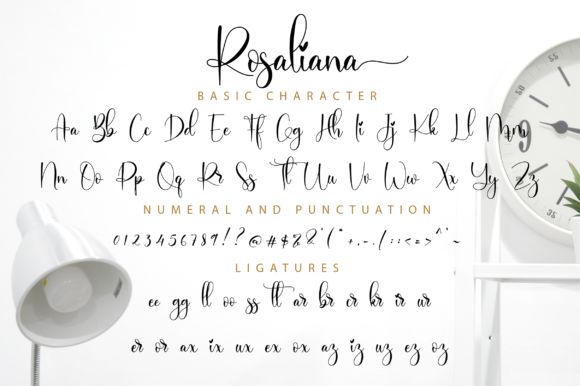 Rosaliana
BASIC CHARACTER
Aa Bb Cc Dd Ee Ff Gg Hh Ii Jj Kk Ll Mm
Nn Oo Pp Qq Rr Ss Tt Uu Vv Ww Xx Yy Zz
NUMERAL AND PUNCTUATION
0123456789!?@#$%&'("+,-.(::<=>^`~
LIGATURES
ee gg ll oo ss tt ar br cr kr ir ur
er or ax ix ux ex ox az iz uz ez oz